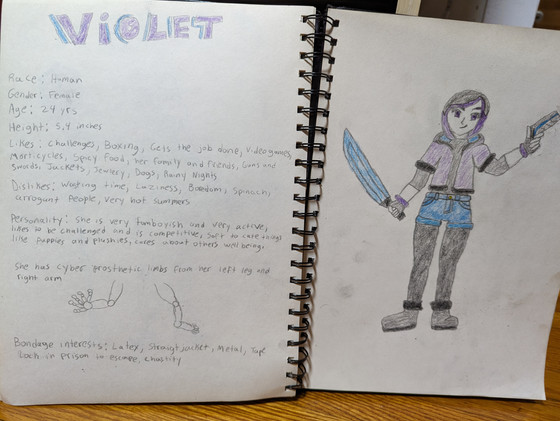 VIOLET
Race: Human
Gender: Female
Age: 24 yrs
Height: 5,4 inches
Likes: Challenges, Boxing, Gets the job done, Videogames,
Motorcycles, Spicy Food, her Family and Friends, Guns and
Swords, Jackets, Jewelry, Dogs, Rainy Nights
Dislikes: Wasting time, Laziness, Boredom, Spinach,
arrogant People, very hot summers
Personality: She is very tomboyish and very active,
likes to be challenged and is competitive, soft to cute things
like puppies and plushies, cares about others wellbeing.
She has cyber prosthetic limbs from her left leg and
right arm
Bondage interests: Latex, Straightjacket, Metal, Tape
Lock in prison to escape, chastity